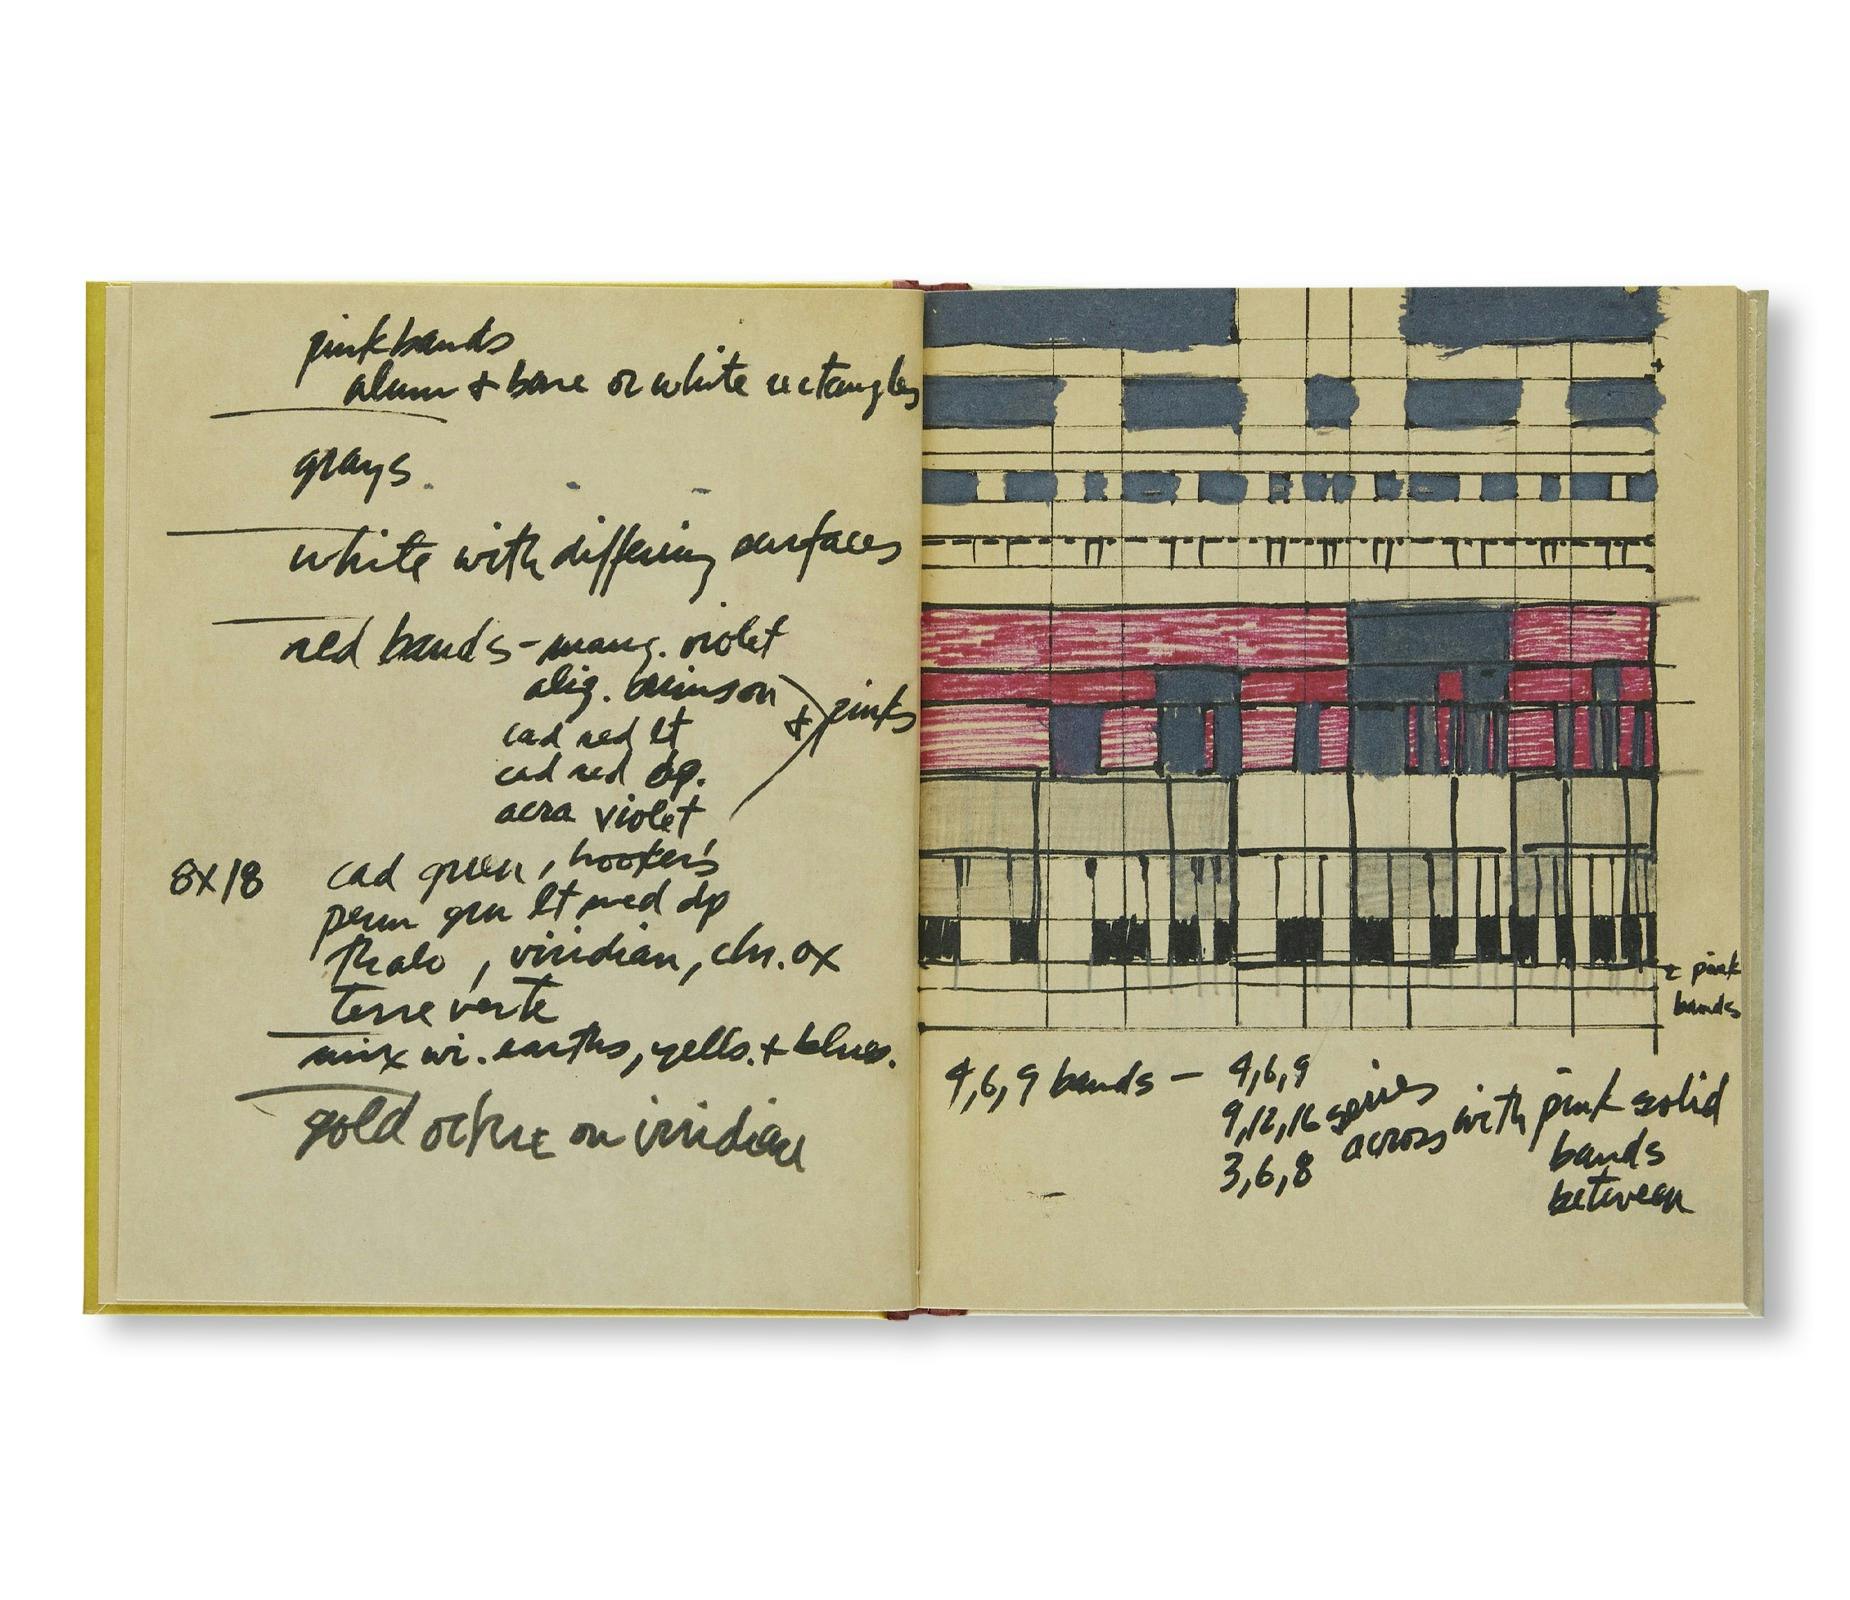 pink bands
alum + bone or white rectangles
grays.
white with differing surfaces
red bands - mang. violet
aliz. crimson
+ pinks
cad red lt
cad red dp.
acra violet
8x18
cad green, hooker's
perm grn lt med dp
thalo, viridian, chr. ox
terre verte
mix wi. earths, yells. + blues.
gold ochre on viridian
pink
bands
4,6,9 bands - 4,6,9
9,12,16 series
across with pink solid
3,6,8
bands
between